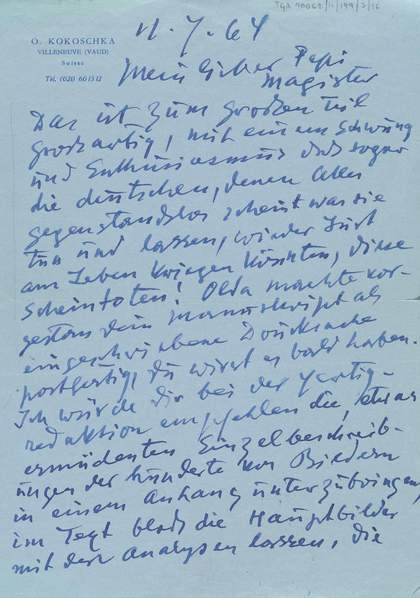 TGA 20069/11/199/2/16
O. KOKOSCHKA
VILLENEUVE (VAUD)
Suisse
Tél. (020) 60 13 12
11. 7. 64
Mein lieber Pepi
Magister
Das ist zum großen Teil
großartig, mit einem Schwung
und Enthusiasmus daß sogar
die deutschen, denen alles
gegenstandslos scheint was sie
tun und lassen, wieder Lust
am Leben kriegen könnten, diese
Scheintoten! Olda machte vor-
gestern dein Manuskript als
eingeschriebene Drucksache
postfertig, du wirst es bald haben.
Ich würde dir bei der
redaktion empfehlen die, etwas
ermüdenten Einzelbeschreib-
ungen der hunderte von Bildern
in einem Anhang unterzubringen,
im Text bloß die Hauptbilder
mit den Analysen lassen, die